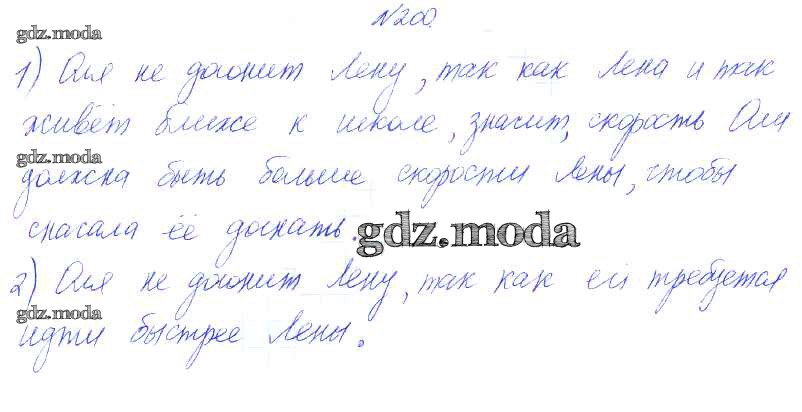 №200.
gdz.moda
1) Оля не догонит Лену, так как Лена и так
живёт ближе к школе, значит, скорость Оли
gdz.moda
должна быть больше скорости Лены, чтобы
сначала её догнать.
gdz.moda
2) Оля не догонит Лену, так как ей требуется
gdz.moda
идти быстрее Лены.